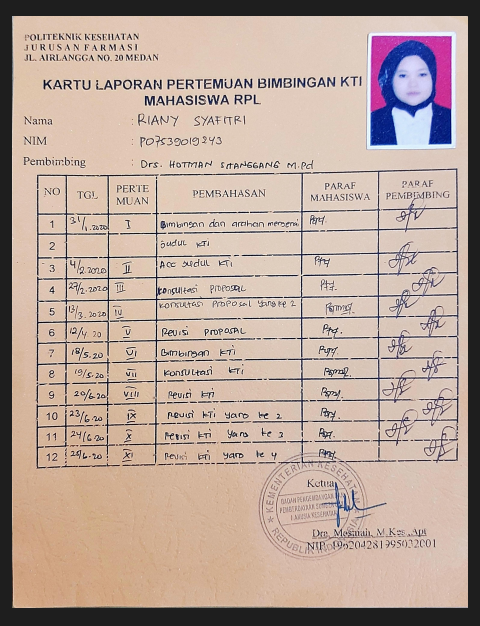 POLITEKNIK KESEHATAN
JURUSAN FARMASI
JL. AIRLANGGA NO. 20 MEDAN
KARTU LAPORAN PERTEMUAN BIMBINGAN KTI
MAHASISWA RPL
Nama : RIANY SYAFITRI
NIM : P07539019243
Pembimbing : Drs. HOTMAN SITANGGANG M.Pd
NO TGL PERTEMUAN PEMBAHASAN PARAF MAHASISWA PARAF PEMBIMBING
1 31/1.2020 I Bimbingan dan arahan mengenai
2 judul KTI
3 4/2.2020 II Acc judul KTI
4 27/2.2020 III Konsultasi PROPOSAL
5 13/3.2020 IV Konsultasi Proposal yang ke 2
6 12/4.20 V Revisi PROPOSAL
7 18/5.20 VI Bimbingan KTI
8 19/5.20 VII Konsultasi KTI
9 20/6.20 VIII Revisi KTI
10 23/6.20 IX Revisi KTI yang ke 2
11 24/6.20 X Revisi KTI yang ke 3
12 XI Revisi KTI yang ke 4
Ketua
KEMENTERIAN KESEHATAN
BADAN PENGEMBANGAN DAN
PEMBERDAYAAN SUMBER DAYA
MANUSIA KESEHATAN
REPUBLIK INDONESIA
Dra. Masniah, M.Kes., Apt
NIP. 196204281995032001